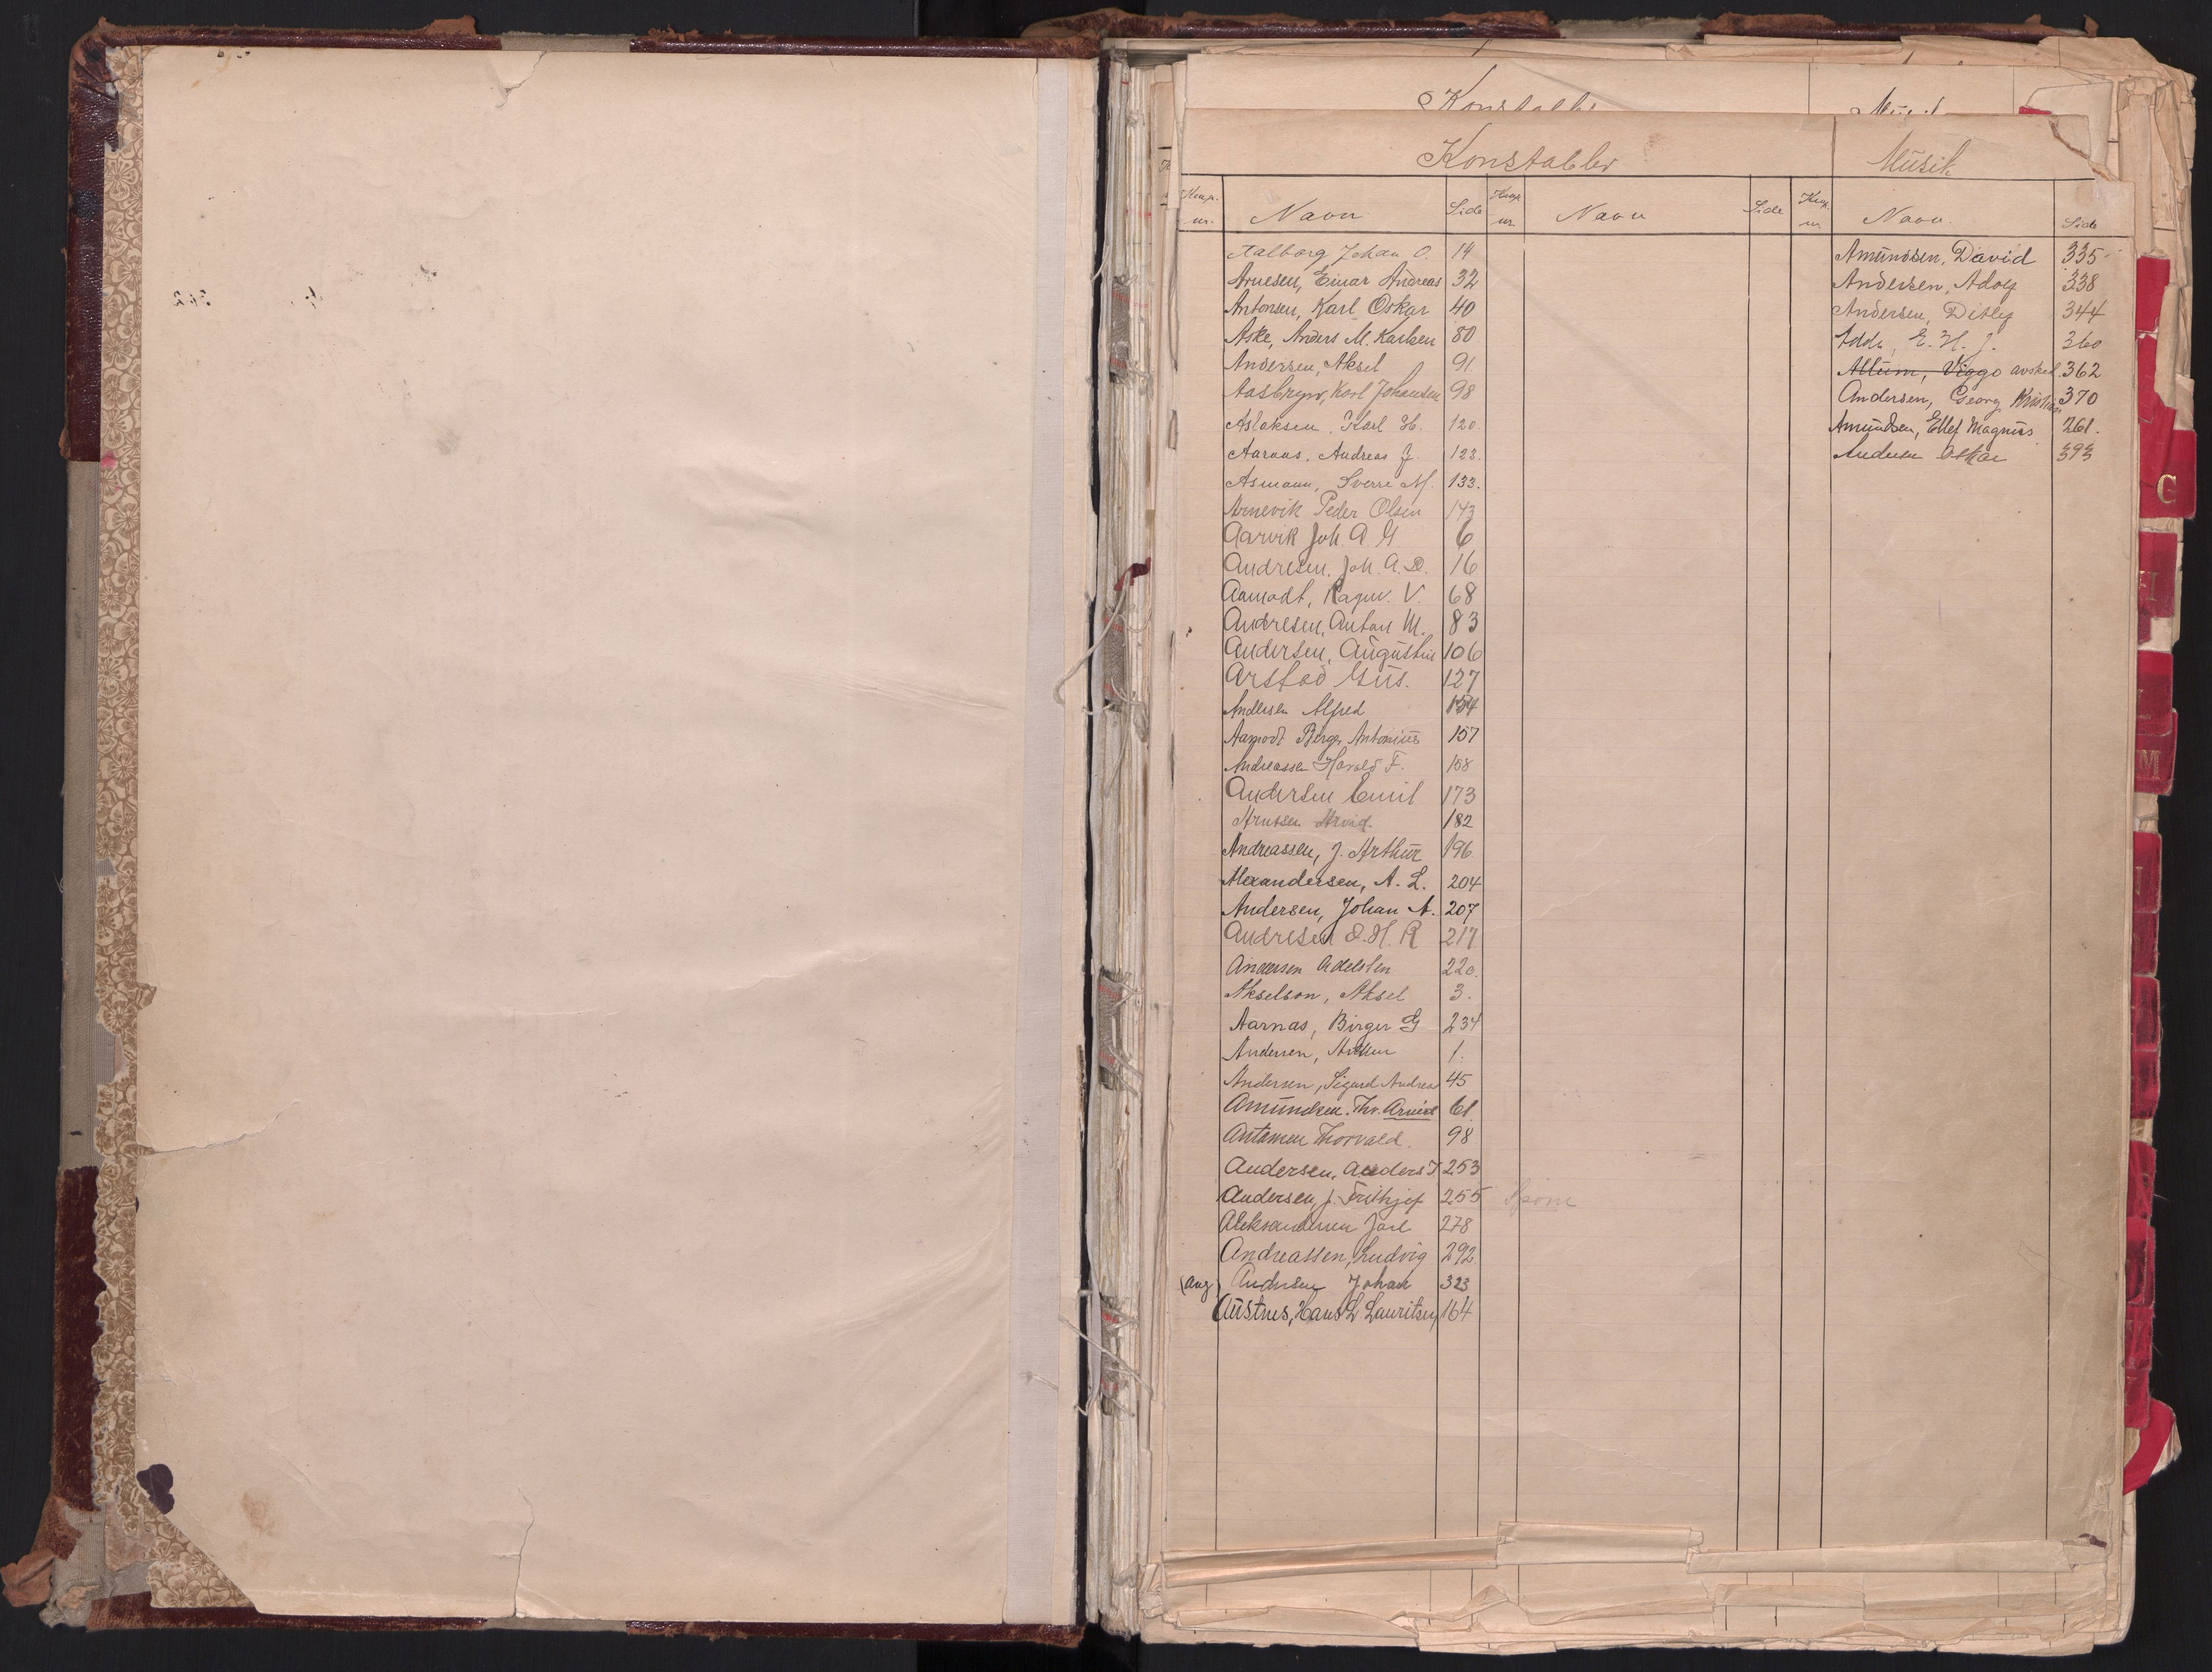 Konstabler Musik
Komp. nr. Navn Side Komp. nr. Navn Side Komp. nr. Navn Side
Aalborg Johan O. 14
Arnesen, Einar Andreas 32
Antonsen, Karl Oskar 40
Aske, Anders M. Karlsen 80
Andersen, Aksel 91
Aasbryn, Karl Johansen 98
Aslaksen, Karl H. 120.
Aaraas, Andreas J. 123.
Asmann, Sverre M. 133.
Arnevik Peder Olsen 143
Aarvik Joh. A. G 6
Andresen, Joh. A. D. 16
Aamodt, Ragnv. V. 68
Andresen, Anton M. 83
Andersen, Augustin 106
Arstad Gus. 127
Andersen Alfred 154
Aamodt Berger Antonius 157
Andreassen Harald F. 158
Andersen Emil 173
Arntsen Arvid. 182
Andreassen, J. Arthur 196
Alexandersen, A. L. 204
Andersen, Johan A. 207
Andresen O. H. R 217
Andersen Adelsten 220.
Akselson, Aksel 3.
Aarnas, Birger G 234
Andersen, Arthur 1.
Andersen, Sigurd Andreas 45
Amundsen. Thv. Arvid 61
Antonsen Thorvald. 98
Andersen, Anders T 253
Andersen, J. Frithjof 255
Aleksandersen Jarl 278
Andreassen, Ludvig 292
(Aug) Andersen Johan 323
Austnes, Hans L Lauritsen 164
Amundsen, David 335
Andersen, Adolf 338
Andersen, Ditlef 344
E. H. J. 360
Allum, Viggo avsked 362
Andersen, Georg Kristian 370
Amundsen, Ellef Magnus 261.
Andersen Oskar 393
G
I
M
Konstabler